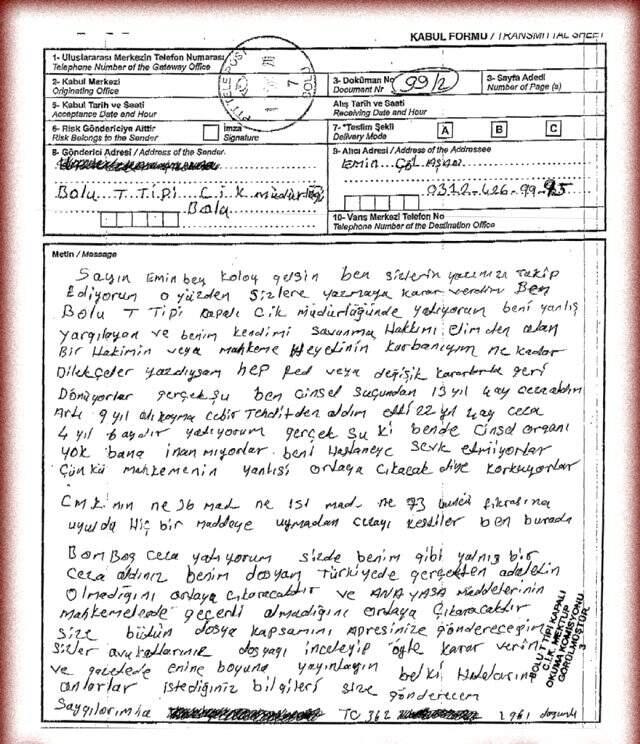 KABUL FORMU / TRANSMITTAL SHEET
1- Uluslararası Merkezin Telefon Numarası
Telephone Number of the Gateway Office
2- Kabul Merkezi
Originating Office
3- Doküman No
Document Nr
99/2
3- Sayfa Adedi
Number of Page (s)
5- Kabul Tarih ve Saati
Acceptance Date and Hour
Alış Tarih ve Saati
Receiving Date and Hour
6- Risk Göndericiye Aittir
Risk Belongs to the Sender
İmza
Signature
7- *Teslim Şekli
Delivery Mode
A
B
C
8- Gönderici Adresi / Address of the Sender.
Bolu T Tipi C.İK müdürlüğü
Bolu
9- Alıcı Adresi / Address of the Addressee
Emin Çöl Aşan
0312-426-99-95
10- Varış Merkezi Telefon No
Telephone Number of the Destination Office
Metin / Message
Sayın Emin bey kolay gelsin ben sizlerin yazınızı takip
Ediyorum o yüzden sizlere yazmaya karar verdim Ben
Bolu T Tipi kapalı Cik müdürlüğünde yatıyorum beni yanlış
yargılayan ve benim kendimi savunma Hakkımı elimden alan
Bir Hakimin veya mahkeme Heyetinin kurbanıyım ne kadar
Dilekçeler yazdıysam hep Red veya değişik kararlarla geri
Dönüyorlar gerçekşu ben cinsel suçundan 13 yıl 4ay ceza aldım
Artı 9 yıl alıkoyma cebir Tehditden aldım etti 22 yıl 4ay ceza
4 yıl baydır yatıyorum gerçek şu ki bende cinsel organı
yok bana inanmıyorlar beni Hastaneye sevk etmiyorlar
Çünkü mahkemenin yanlışı ortaya çıkacak diye korkuyorlar
CMK.nın ne 36 mad ne 151 mad ne 73 üncü fıkrasına
uyuldu Hiç bir maddeye uymadan cezayı kestiler ben burada
BomBoş ceza yatıyorum sizde benim gibi yalnış bir
ceza aldınız benim dosyam Türkiyede gerçekten adaletin
Olmadığını ortaya çıkaracaktır ve ANAYASA maddelerinin
mahkemelerde geçerli olmadığını ortaya çıkaracaktır
Size bütün dosya kapsamını Apresinize göndereceğim
Sizler avukatlarınız dosyayı inceleyip öyle karar verin
ve gazetede enine boyuna yayınlayın belki Hatalarını
anlarlar istediğiniz bilgileri size gönderecem
Saygılarımla TC 362 1961 doğumlu
BOLU T TİPİ KAPALI
C.İ.K. MEKTUP
OKUMA KOMİSYONU
GÖRÜLMÜŞTÜR
3